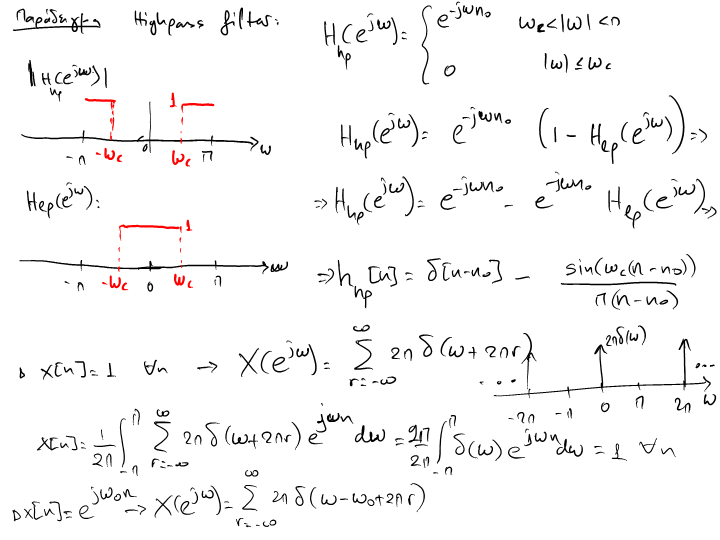 Παράδειγμα Highpass filter:
H_hp(e^{jω}) = { e^{-jωn₀}  ω_c<|ω|<π
0  |ω| ≤ ω_c
|H_hp(e^{jω})|
1
-π -ω_c 0 ω_c π ω
H_hp(e^{jω}) = e^{-jωn₀} (1 - H_lp(e^{jω})) =>
H_lp(e^{jω}):
=> H_hp(e^{jω}) = e^{-jωn₀} - e^{-jωn₀} H_lp(e^{jω}) =>
1
-π -ω_c 0 ω_c π ω
=> h_hp[n] = δ[n-n₀] - sin(ω_c(n-n₀)) / π(n-n₀)
▷ x[n] = 1 ∀n → X(e^{jω}) = Σ_{r=-∞}^{∞} 2π δ(ω+2πr)
2πδ(ω)
... ...
-2π -π 0 π 2π ω
x[n] = 1/2π ∫_{-π}^{π} Σ_{r=-∞}^{∞} 2π δ(ω+2πr) e^{jωn} dω = 2π/2π ∫_{-π}^{π} δ(ω) e^{jωn} dω = 1 ∀n
▷ x[n] = e^{jω₀n} → X(e^{jω}) = Σ_{r=-∞}^{∞} 2π δ(ω-ω₀+2πr)